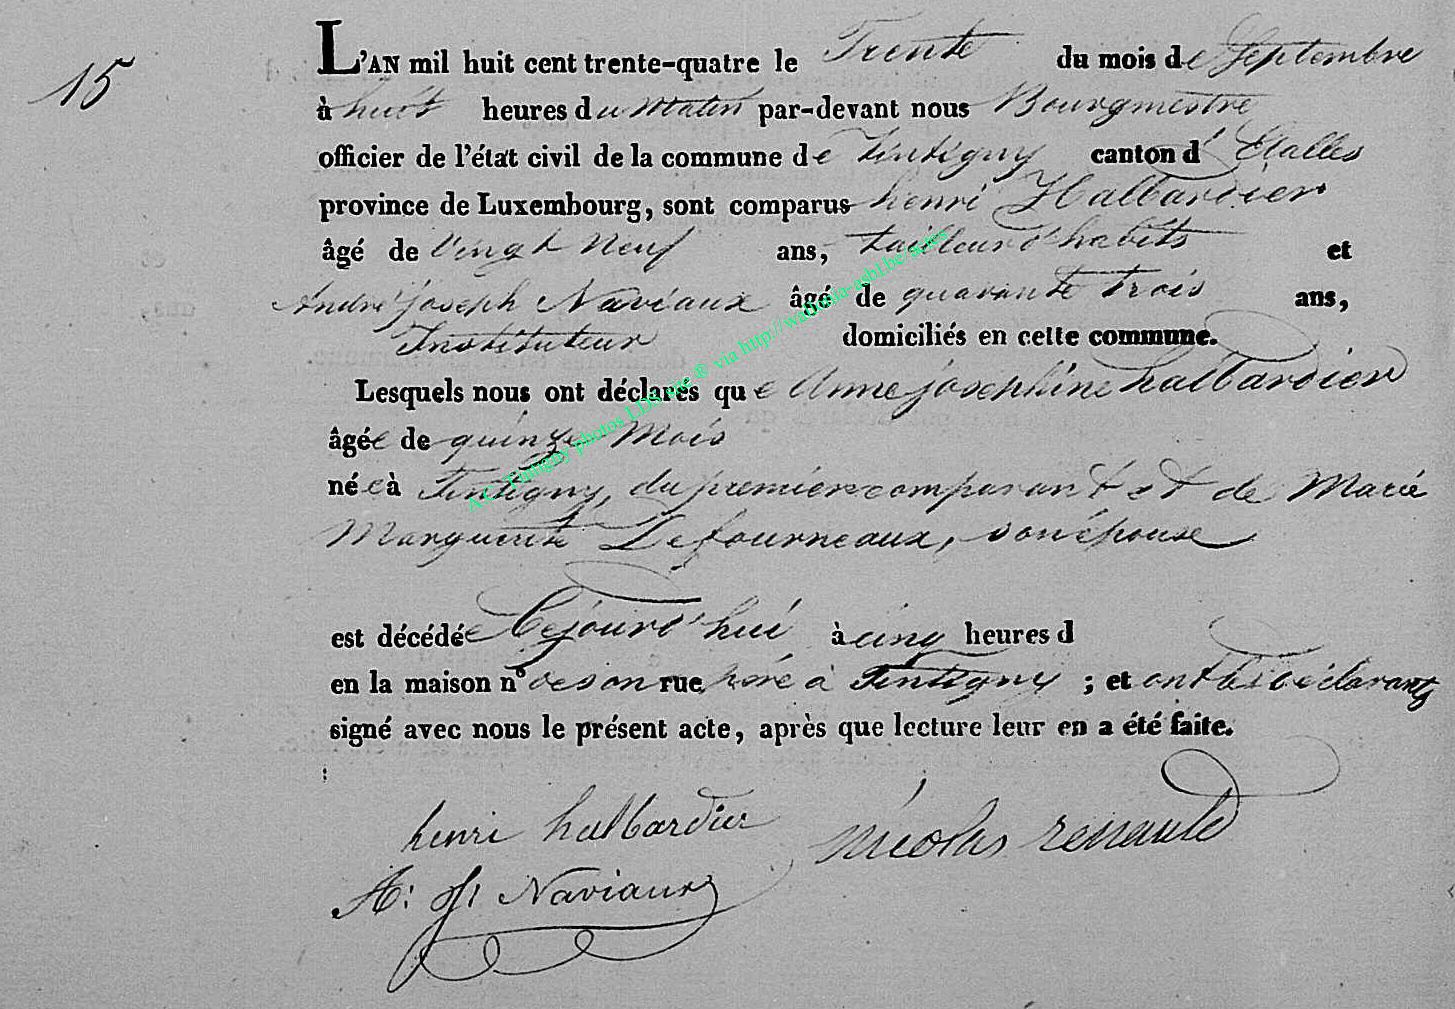 15
L'AN mil huit cent trente-quatre le Trente du mois de Septembre
à huit heures du Matin par-devant nous Bourgmestre
officier de l'état civil de la commune de Tintigny canton d'Etalles
province de Luxembourg, sont comparus henri Halbardier
âgé de Vingt Neuf ans, tailleur d'habits et
André joseph Naviaux âgé de quarante trois ans,
Instituteur domiciliés en cette commune.
Lesquels nous ont déclarés que Anne josephine halbardier
âgée de quinze Mois
née à Tintigny, du premier comparant et de Marie
Marguerite Defourneaux, son épouse
est décédée Cejourd'hui à cinq heures d
en la maison n° de son rue père à Tintigny ; et ont les déclarants
signé avec nous le présent acte, après que lecture leur en a été faite.
henri halbardier nicolas renauld
A: J: Naviaux
A.C. Tintigny photos LDS pic ® via http://wallonia-asbl.be/actes